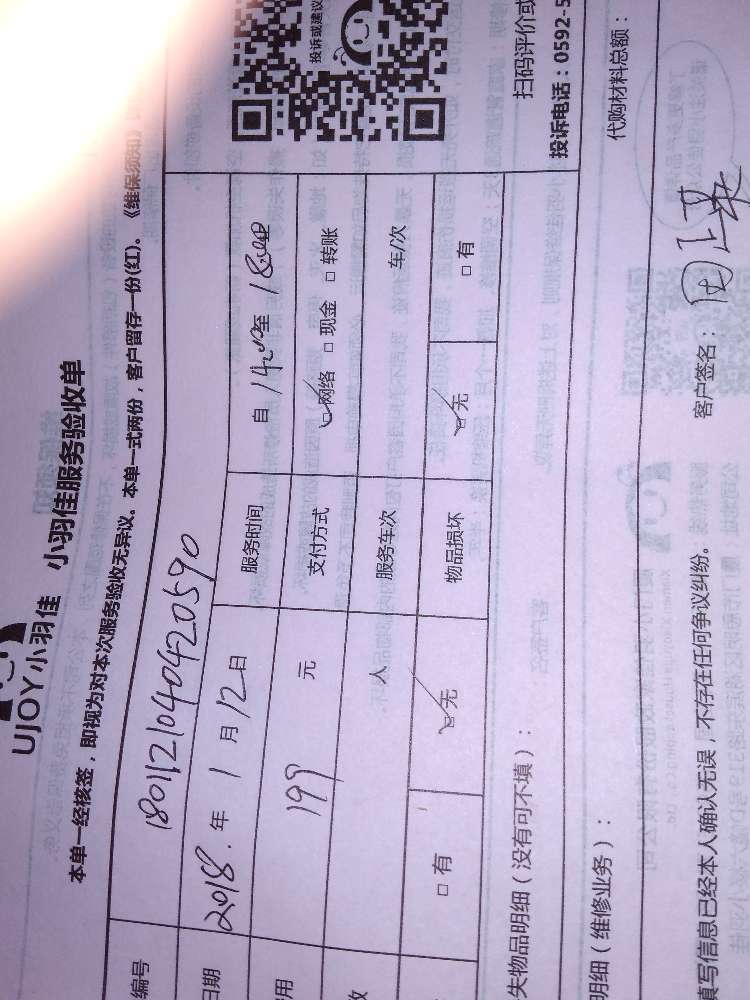 UJOY小羽佳 小羽佳服务验收单
本单一经核签，即视为对本次服务验收无异议。本单一式两份，客户留存一份(红)。《维保须知》
编号 1801121040420590
日期 2018.年 1 月 12 日 服务时间 自 14:00 至 18:00
用 199 元 支付方式 ☑网络 □现金 □转账
人 服务车次 车/次
□有 ☑无 物品损坏 ☑无 □有
投诉或建议
扫码评价或
投诉电话：0592-5
失物品明细（没有可不填）：
明细（维修业务）： 代购材料总额：
真写信息已经本人确认无误，不存在任何争议纠纷。 客户签名：